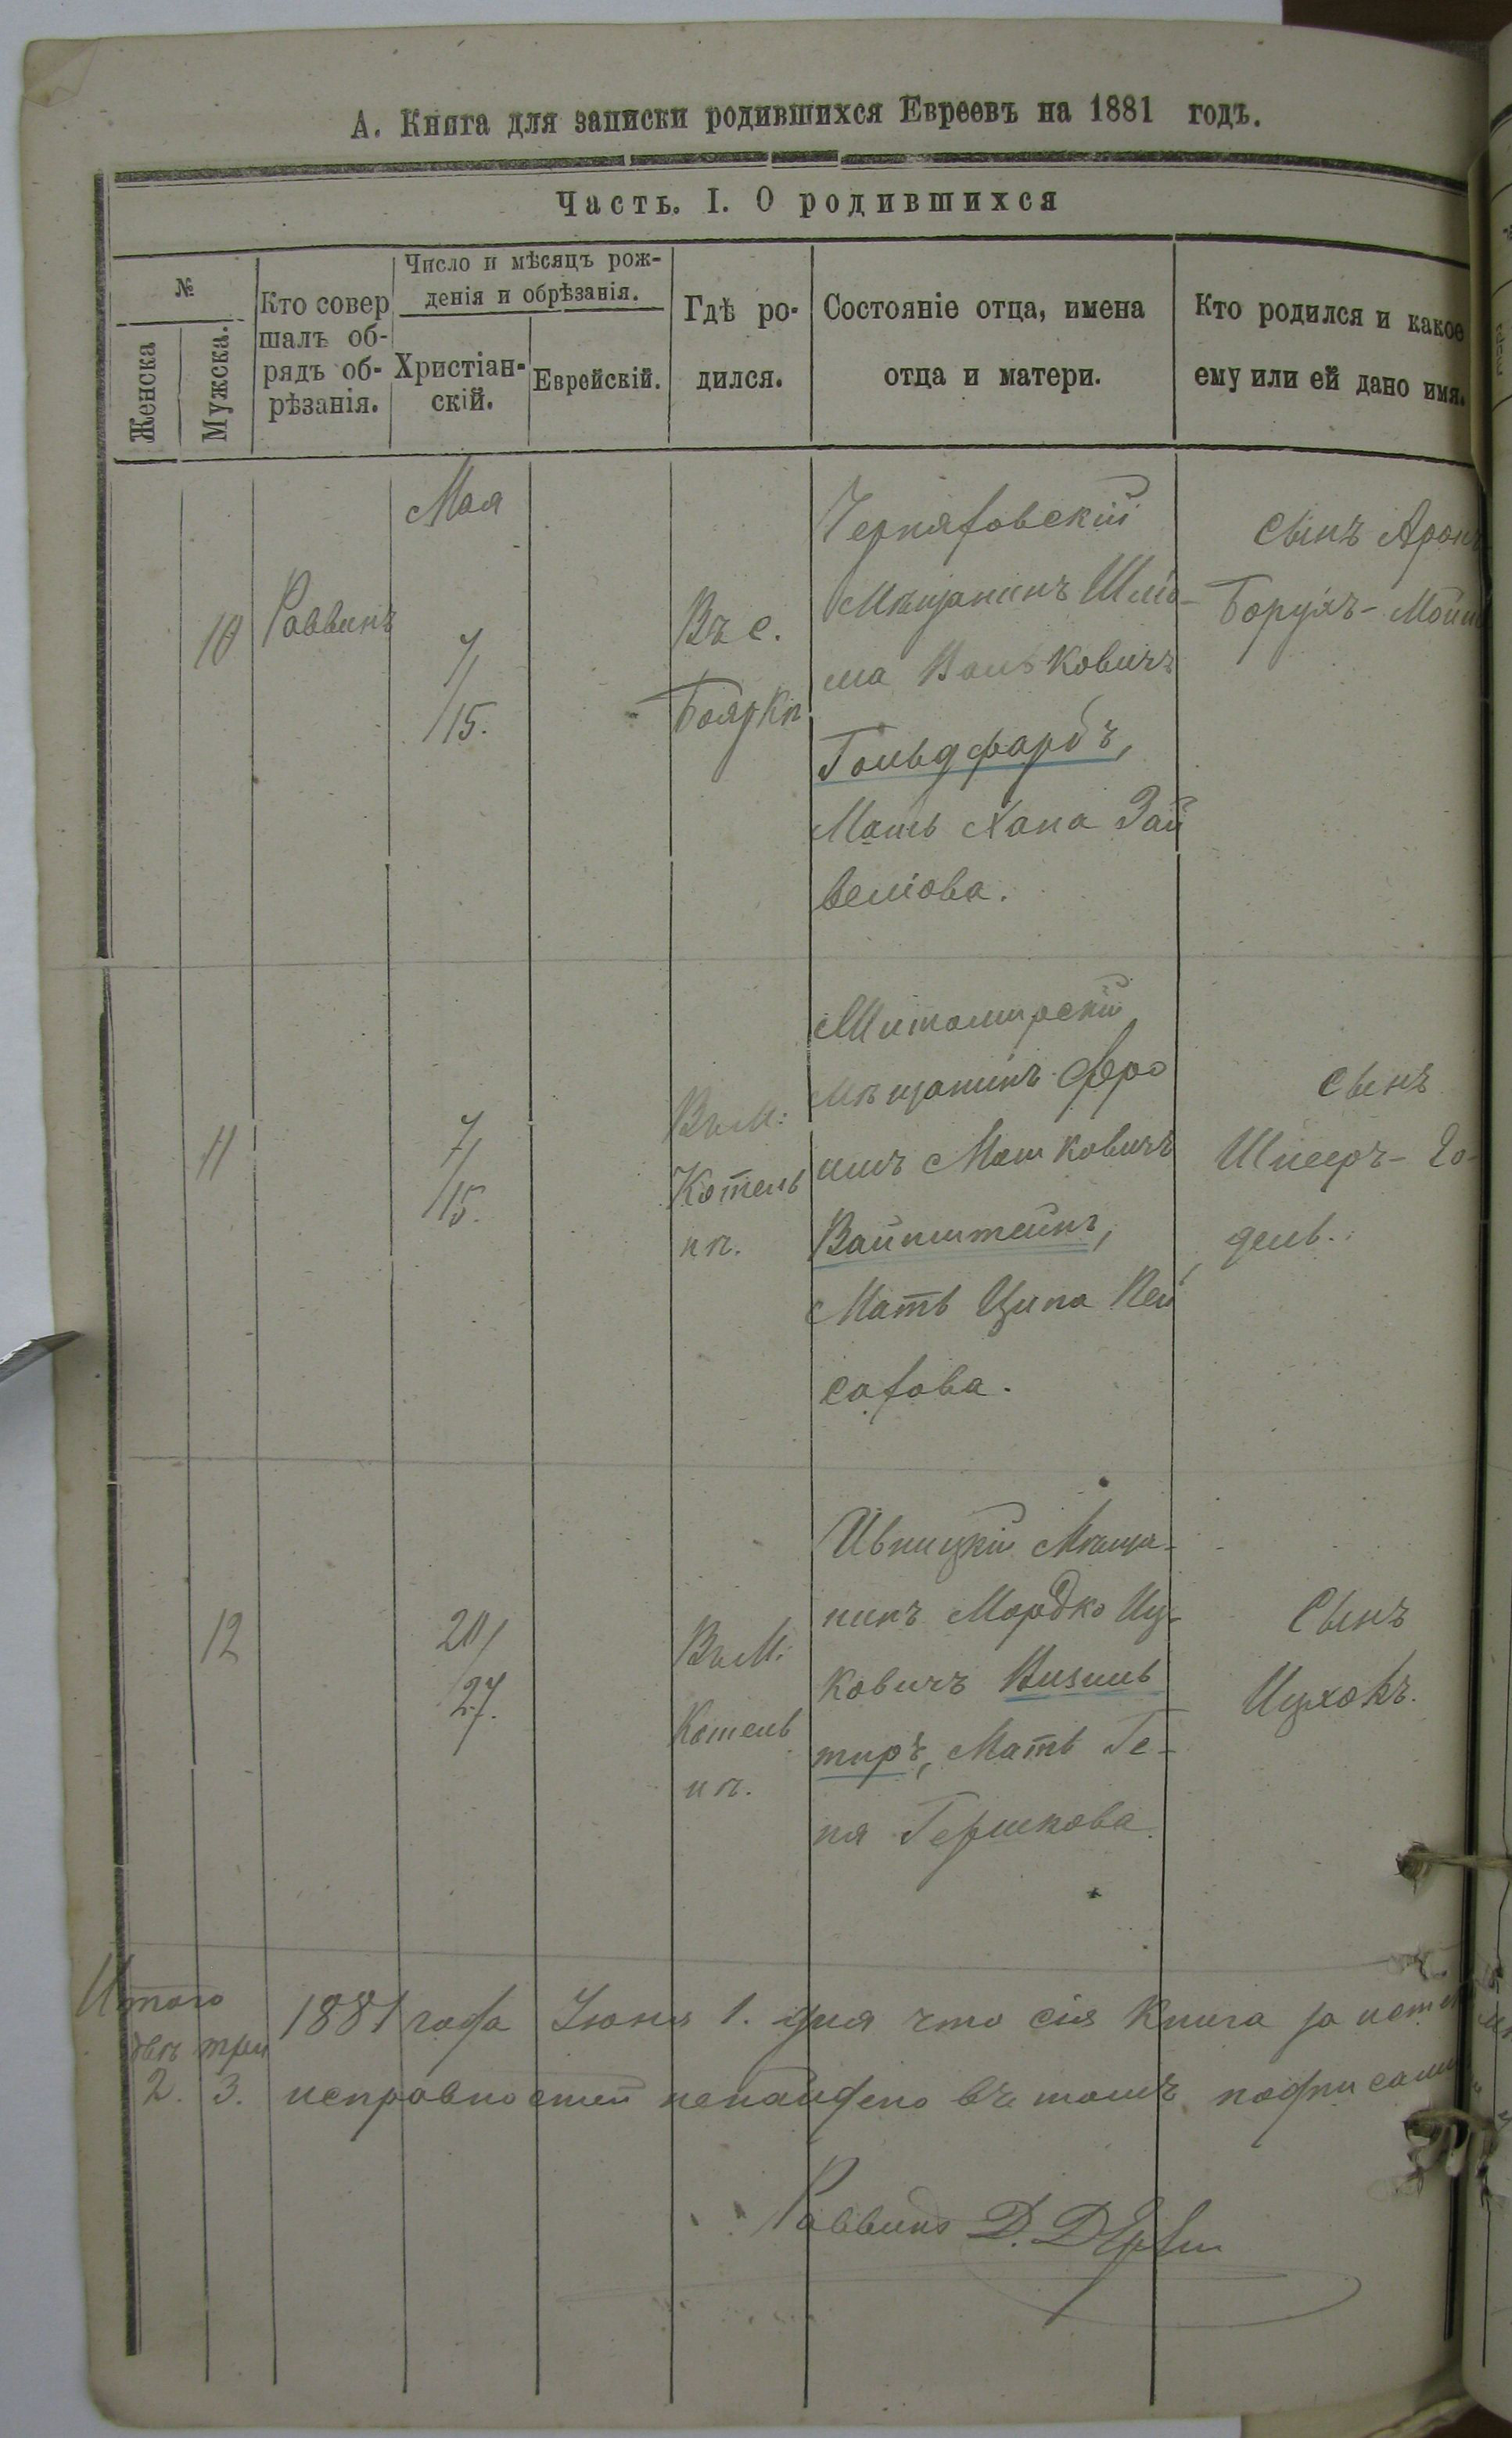 А. Книга для записки родившихся Евреевъ на 1881 годъ.
Часть. I. О родившихся
№
Женска
Мужска.
Кто совер
шалъ об-
рядъ об-
рѣзанія.
Число и мѣсяцъ рож-
денія и обрѣзанія.
Христіан-
скій.
Еврейскій.
Гдѣ ро-
дился.
Состояніе отца, имена
отца и матери.
Кто родился и какое
ему или ей дано имя.
10
Раввинъ
Мая
7/
/15.
Въ с.
Боярки
Черняховскій
Мѣщанинъ Шлё-
ма Вольковичъ
Гольдфарбъ,
Мать Хана Зай
веліова.
сынъ Аронъ
Борухъ-
11
7/
/15.
Въ М:
Котель
нѣ.
Житомирскій
мѣщанинъ Фро
имъ Мошковичъ
Вайнштейнъ,
Мать Ципа Пей
сахова.
сынъ
Шмеръ-
дель.
12
20/
/27.
Въ М:
Котель
нѣ.
Ивницкій Мѣща-
нинъ Мордко Иц-
ковичъ Визиль
тиръ, Мать Ге-
ня Гершкова.
Сынъ
Ицхокъ.
Итого
двѣ три
2. 3.
1881 года Іюня 1. дня что сія Книга за
исправностей ненайдено въ томъ
Раввинъ Д.